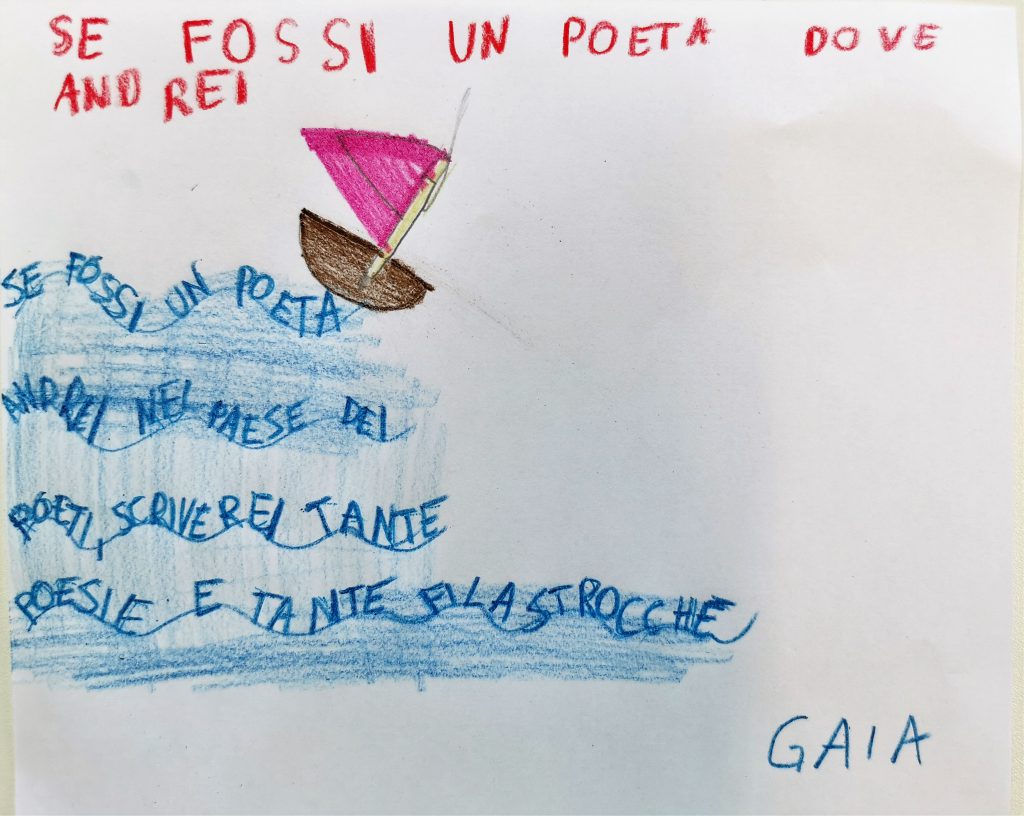 SE FOSSI UN POETA DOVE
ANDREI
SE FOSSI UN POETA
ANDREI NEL PAESE DEI
POETI, SCRIVEREI TANTE
POESIE E TANTE FILASTROCCHE
GAIA